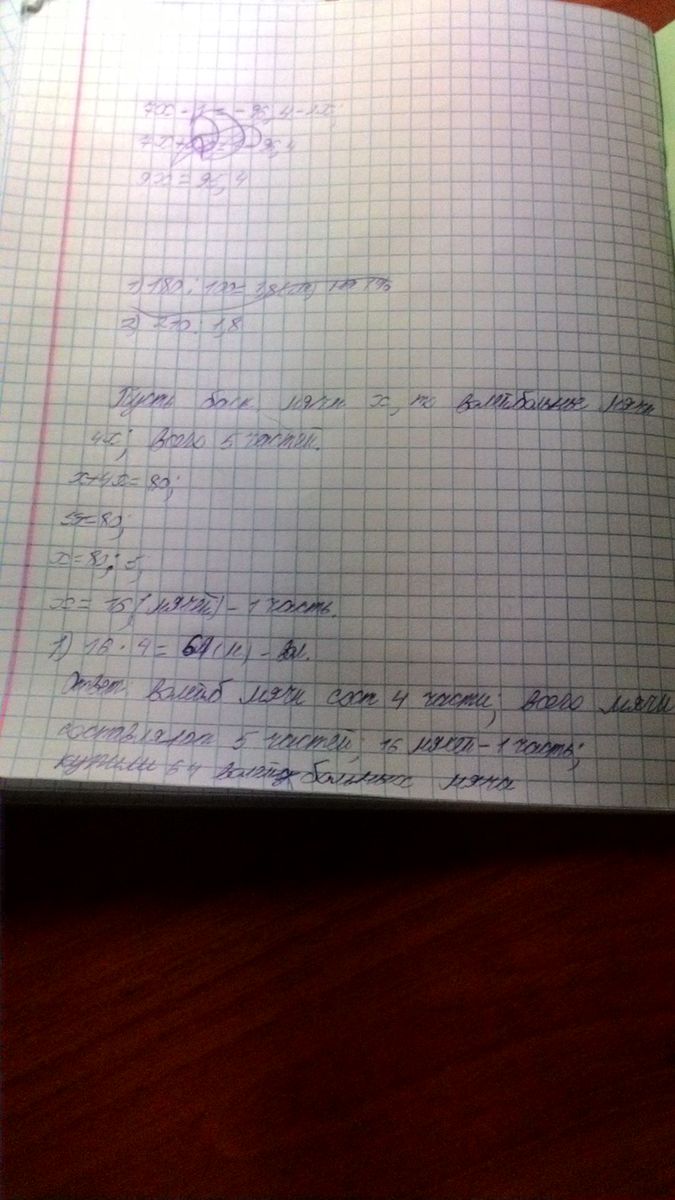 9x = 95,4
1) 180 : 100 = 1,8
2) 210 : 1,8
Пусть баск. мячи x, то волейбольные мячи
4x; всего 5 частей.
x+4x=80;
5x=80;
x=80:5;
x= 16 (мячей) - 1 часть.
1) 16 · 4 = 64 (м) - вол.
Ответ: волейб мячи сост 4 части; всего мячи
составляют 5 частей; 16 мячей - 1 часть;
купили 64 волейбольных мяча